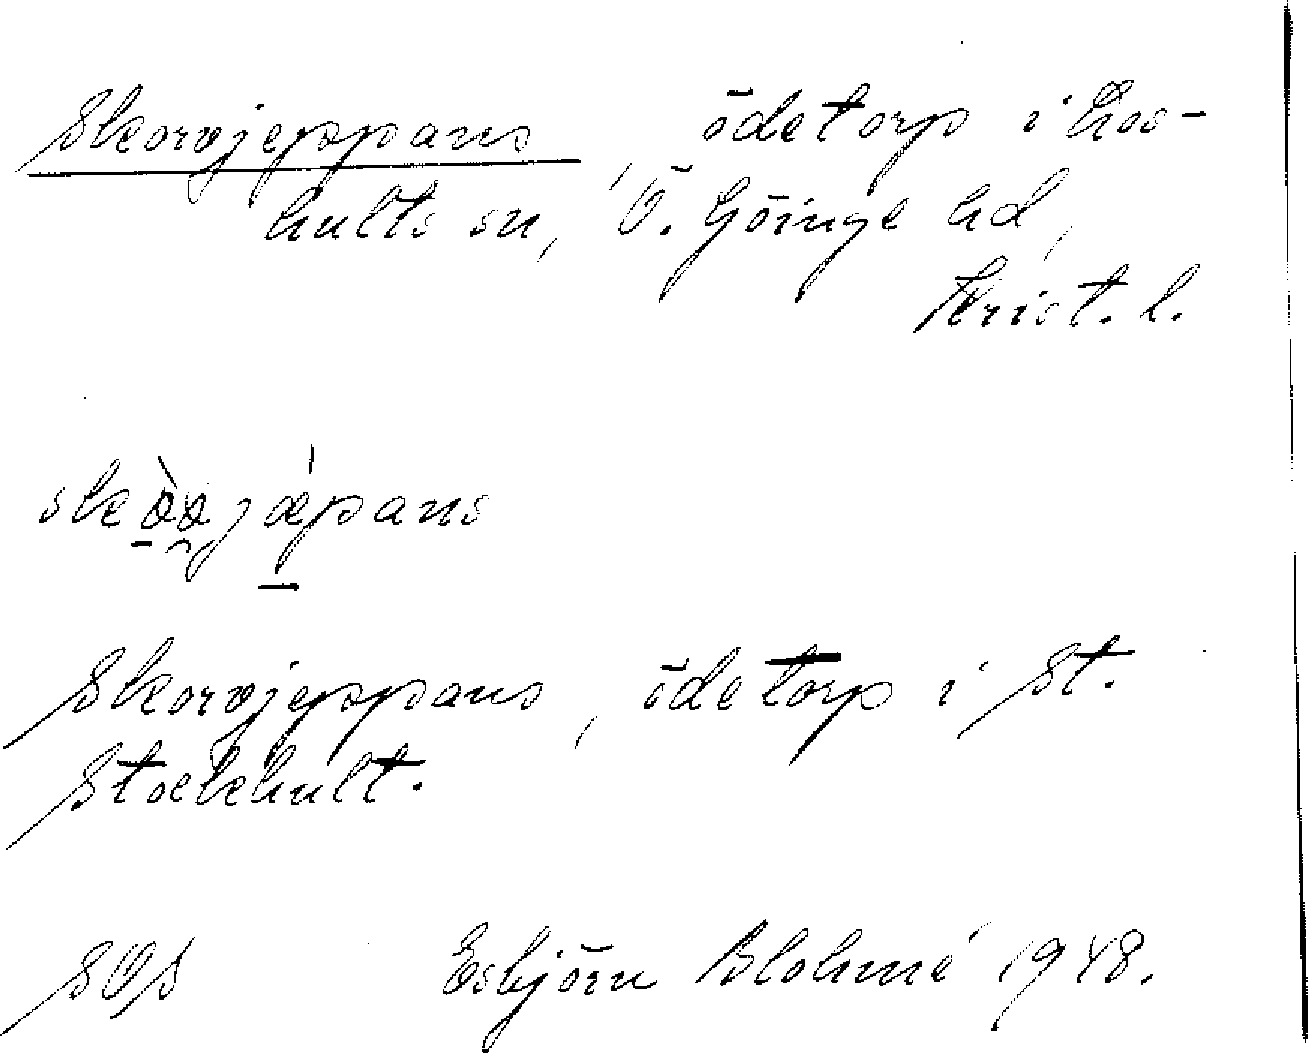 Skorvjeppans, ödetorp i Loshults sn, Ö. Göinge hd,
Krist. l.
Skorvjeppans, ödetorp i St.
Stockhult.
SOS Esbjörn Blohmé 1948.